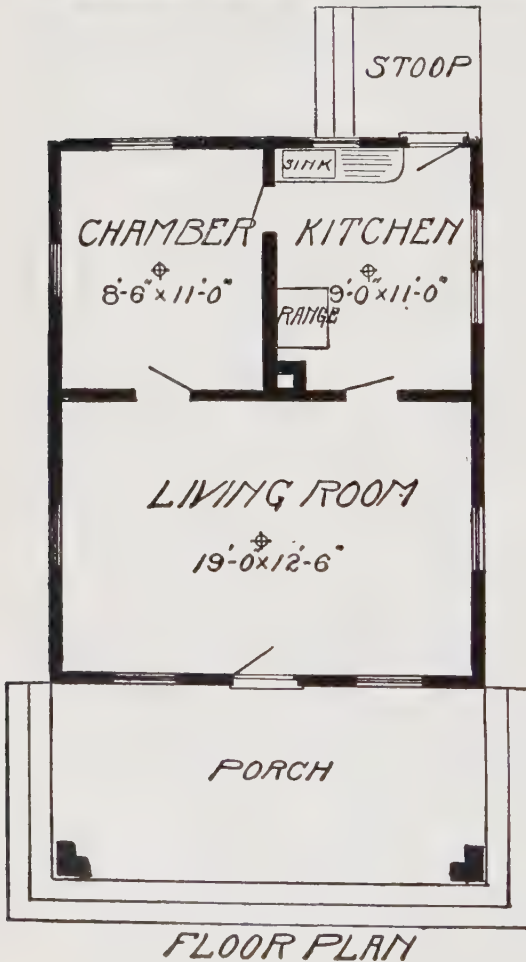 STOOP
SINK
CHAMBER
8'-6" x 11'-0"
KITCHEN
9'-0" x 11'-0"
RANGE
LIVING ROOM
19'-0" x 12'-6"
PORCH
FLOOR PLAN